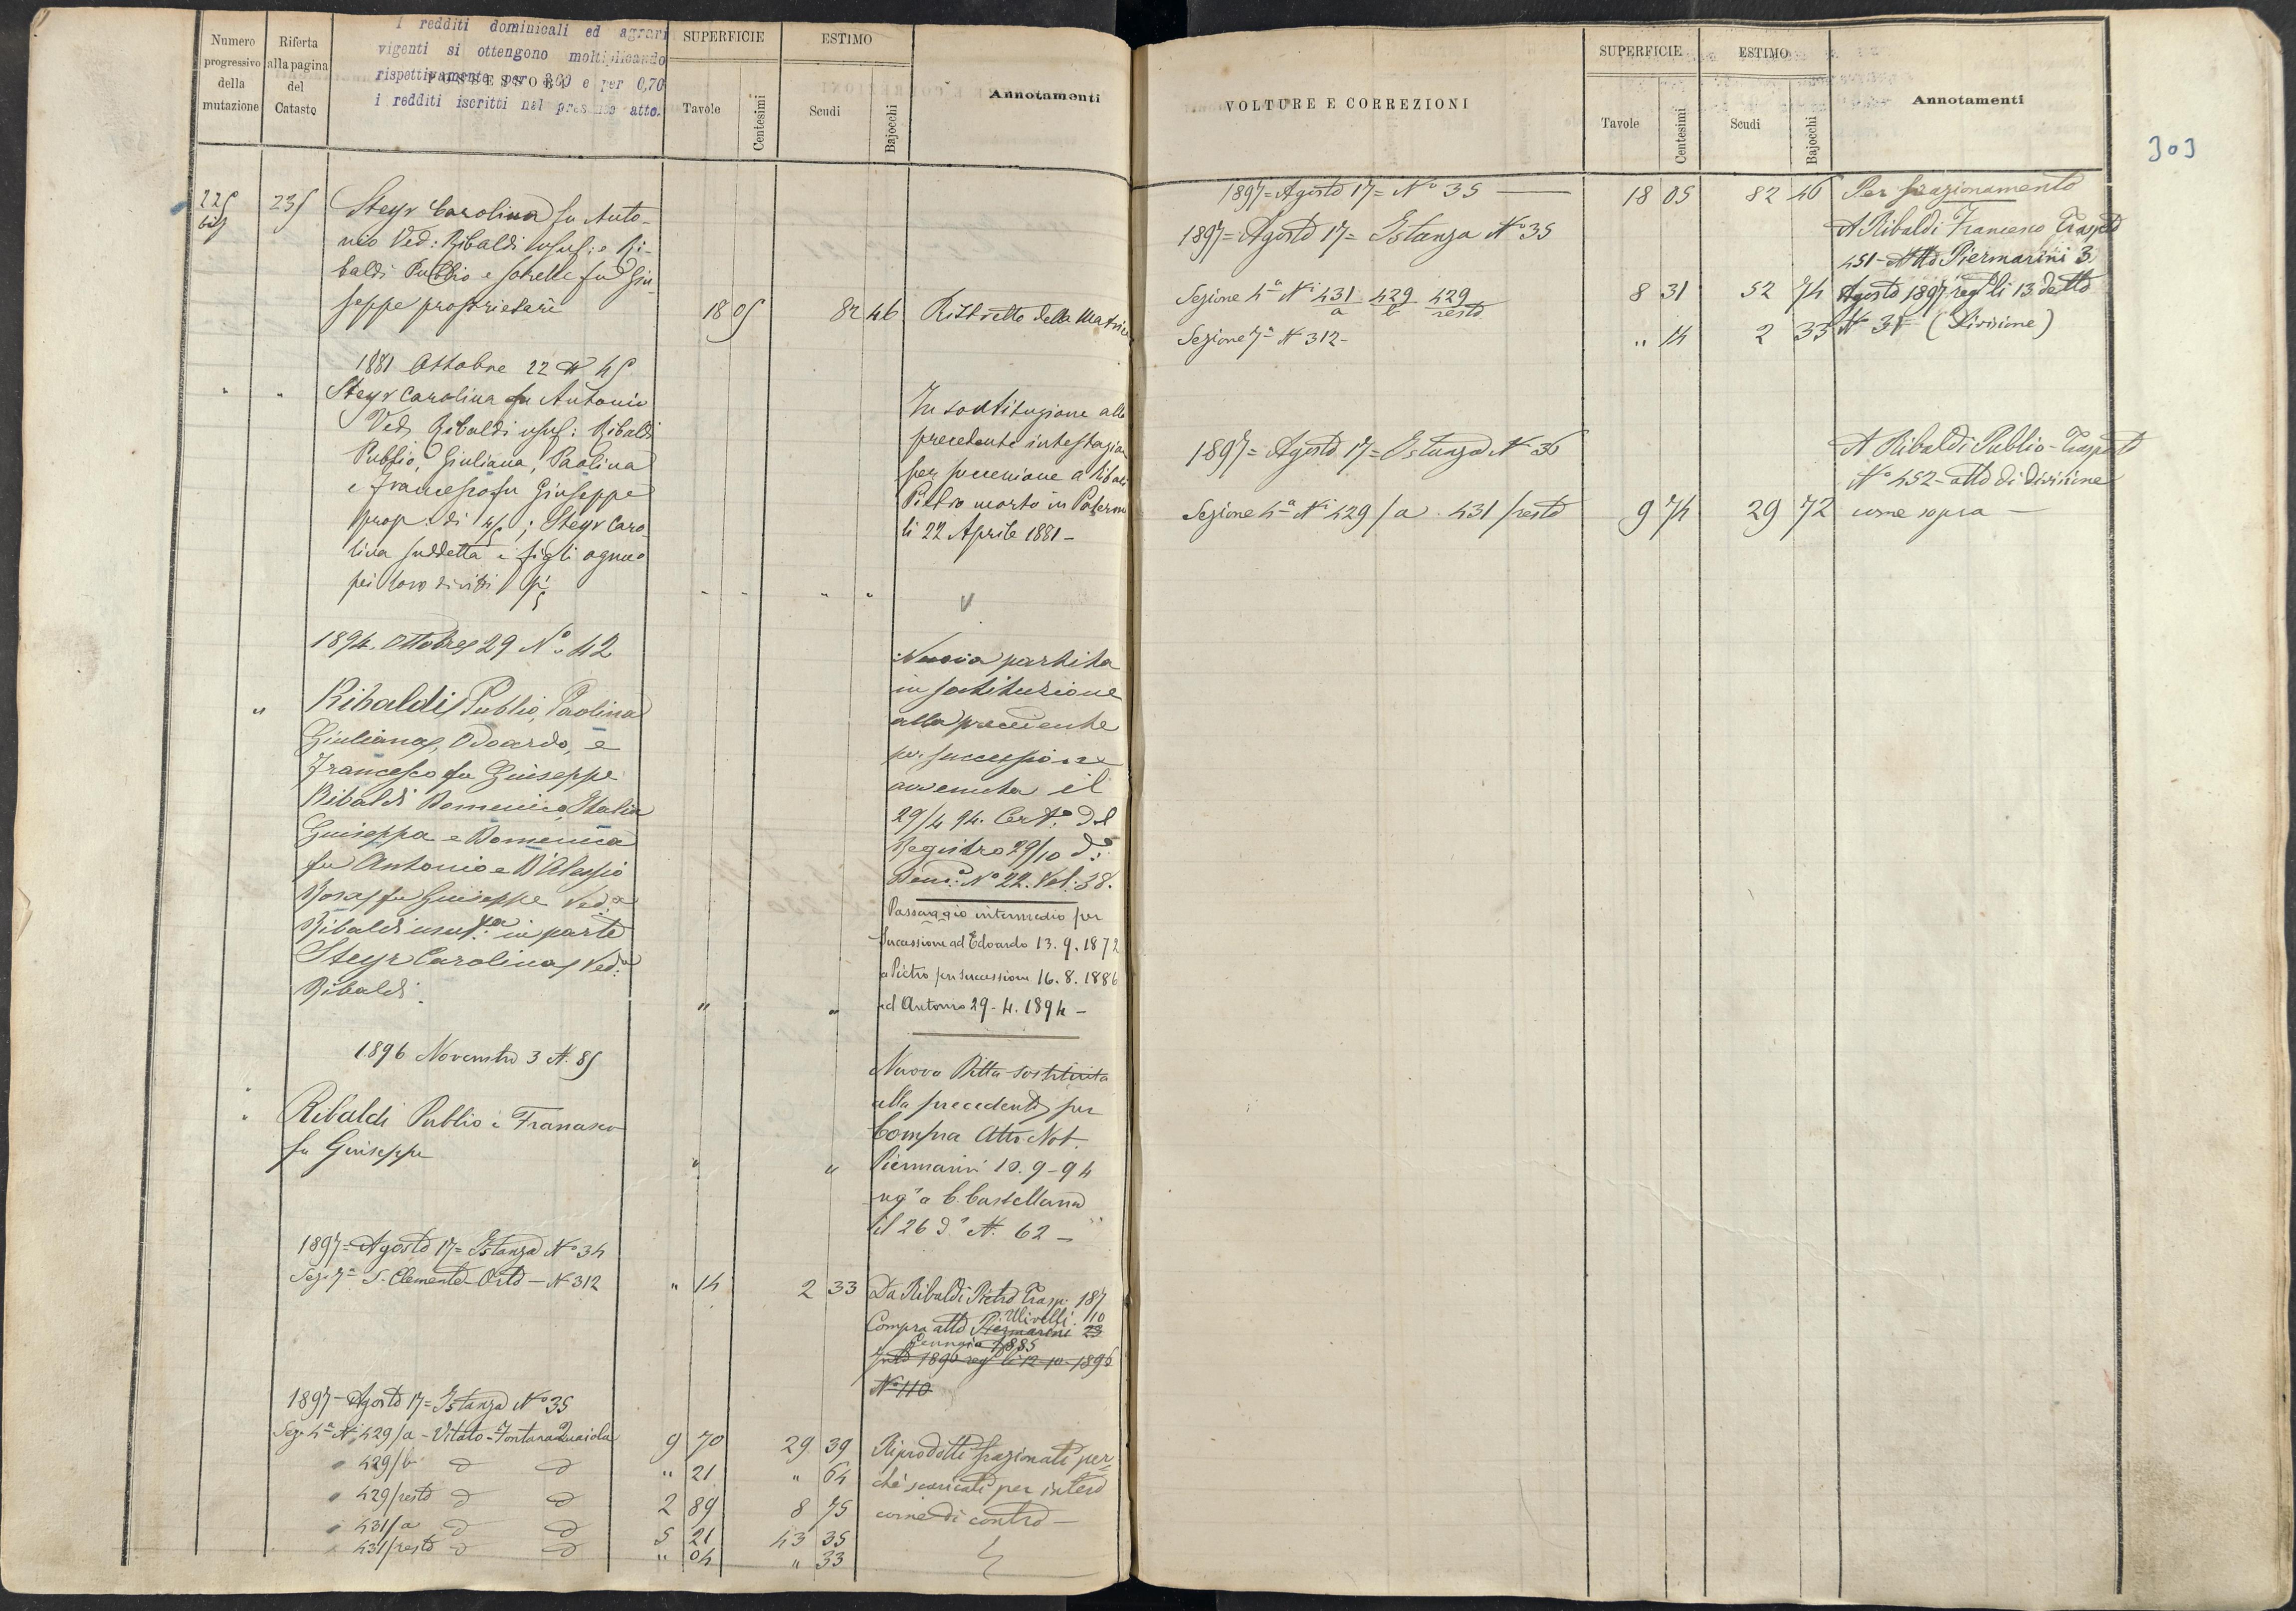 I redditi dominicali ed agrari
vigenti si ottengono moltiplicando
rispettivamente per 3,60 e per 0,70
i redditi iscritti nel presente atto.
Numero progressivo della mutazione
Riferta alla pagina del Catasto
POSSESSORI
SUPERFICIE
Tavole
Centesimi
ESTIMO
Scudi
Bajocchi
Annotamenti
225 235 Steyr Carolina fu Anto-
bis
nio Ved: Ribaldi usuf: e Ri-
baldi Publio e sorelle fu Giu-
seppe proprietari 18 05 82 46 Ristretto della Matrice
1881 Ottobre 22 N° 45
" " Steyr Carolina fu Antonio
Ved Ribaldi usuf: Ribaldi
Publio, Giuliana, Paolina
e Francesco fu Giuseppe
prop: di 4/5; Steyr Caro-
lina suddetta e figli ognuno
pei loro diritti
" " " "
In sostituzione alla
precedente intestazione
per successione a Ribaldi
Pietro morto in Palermo
li 22 Aprile 1881 -
1894. Ottobre 29 N°. 42
" Ribaldi Publio, Paolina
Giuliana, Odoardo, e
Francesco fu Giuseppe
Ribaldi Domenico, Italia
Giuseppa e Domenica
fu Antonio e D'Alessio
Rosa fu Giuseppe Ved.a
Ribaldi usuf.a in parte
Steyr Carolina Ved.a
Ribaldi.
" "
Nuova partita
in sostituzione
alla precedente
per successione
avvenuta il
29/4 94. Cert.o del
Registro 29/10 d.o
Den.a N° 22. Vol: 38.
Passaggio intermedio per
Successione ad Edoardo 13.9.1872
a Pietro per successione 16.8.1886
ad Antonio 29-4.1894 -
1896 Novembre 3 N. 85
" Ribaldi Publio e Francesco
fu Giuseppe
" "
Nuova Ditta sostituita
alla precedente per
Compra Atto Not.
Piermarini 10.9-94
reg° a C. Castellana
il 26 d° N. 62 -
1897 = Agosto 17 = Istanza N° 34
Sez. 7ª S. Clemente Orto - N 312 " 14 2 33
Da Ribaldi Pietro Trasp: 187
Ulivelli 110
Compra atto Piermarini 23
1885
1896 reg° li 12-10-1896
N° 110
1897 - Agosto 17 = Istanza N° 35
Sez. 4ª N.i 429/a - Vitato - Fontana Quaiola 9 70 29 39 Riprodotti frazionati per-
" 429/b d d " 21 " 64 chè scaricati per intero
" 429/resto d d 2 89 8 75 come di contro -
" 431/a d d 5 21 43 35
" 431/resto d d " 04 " 33
VOLTURE E CORREZIONI
SUPERFICIE
Tavole
Centesimi
ESTIMO
Scudi
Bajocchi
Annotamenti
303
1897 = Agosto 17 = N° 35 — 18 05 82 46 Per frazionamento
1897 = Agosto 17 = Istanza N° 35 A Ribaldi Francesco Trasporto
451 - Atto Piermarini 3
Sezione 4ª N.i 431/a 429/b 429/resto 8 31 52 74 Agosto 1897 reg° li 13 detto
Sezione 7ª N 312 - " 14 2 33 N° 31 = (Divisione)
1897 = Agosto 17 = Istanza N° 36 A Ribaldi Publio - Trasporto
N° 452 - atto di divisione
Sezione 4ª N.i 429/a. 431/resto 9 74 29 72 come sopra -